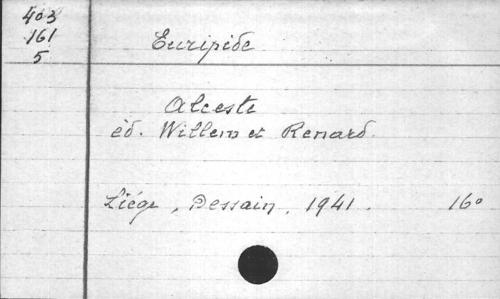 403
161
5
Euripide
Alceste
éd. Willem et Renard.
Liége, Dessain, 1941. 16°